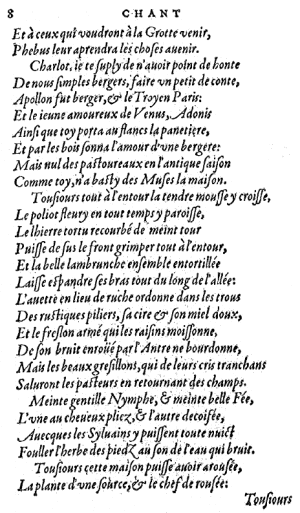 8 CHANT
Et à ceux qui voudront à la Grotte venir,
Phebus leur aprendra les choses auenir.
Charlot, ie te suply de n'auoir point de honte
De nous simples bergers, faire vn petit de conte,
Apollon fut berger, & le Troyen Paris:
Et le ieune amoureux de Venus, Adonis
Ainsi que toy porta au flancs la panetiere,
Et par les bois sonna l'amour d'vne bergere:
Mais nul des pastoureaux en l'antique saison
Comme toy, n'a basty des Muses la maison.
Tousiours tout à l'entour la tendre mousse y croisse,
Le poliot fleury en tout temps y paroisse,
Le lhierre tortu recourbé de meint tour
Puisse de sus le front grimper tout à l'entour,
Et la belle lambrunche ensemble entortillée
Laisse espandre ses bras tout du long de l'allée:
L'auette en lieu de ruche ordonne dans les trous
Des rustiques piliers, sa cire & son miel doux,
Et le freslon armé qui les raisins moissonne,
De son bruit enroüé par l'Antre ne bourdonne,
Mais les beaux gresillons, qui de leurs cris tranchans
Saluront les pasteurs en retournant des champs.
Meinte gentille Nymphe, & meinte belle Fée,
L'vne au cheueux pliez, & l'autre decoifée,
Auecques les Syluains y puissent toute nuict
Fouller l'herbe des piedz au son de l'eau qui bruit.
Tousiours cette maison puisse auoir arousée,
La plante d'vne source, & le chef de rousée:
Tousiours